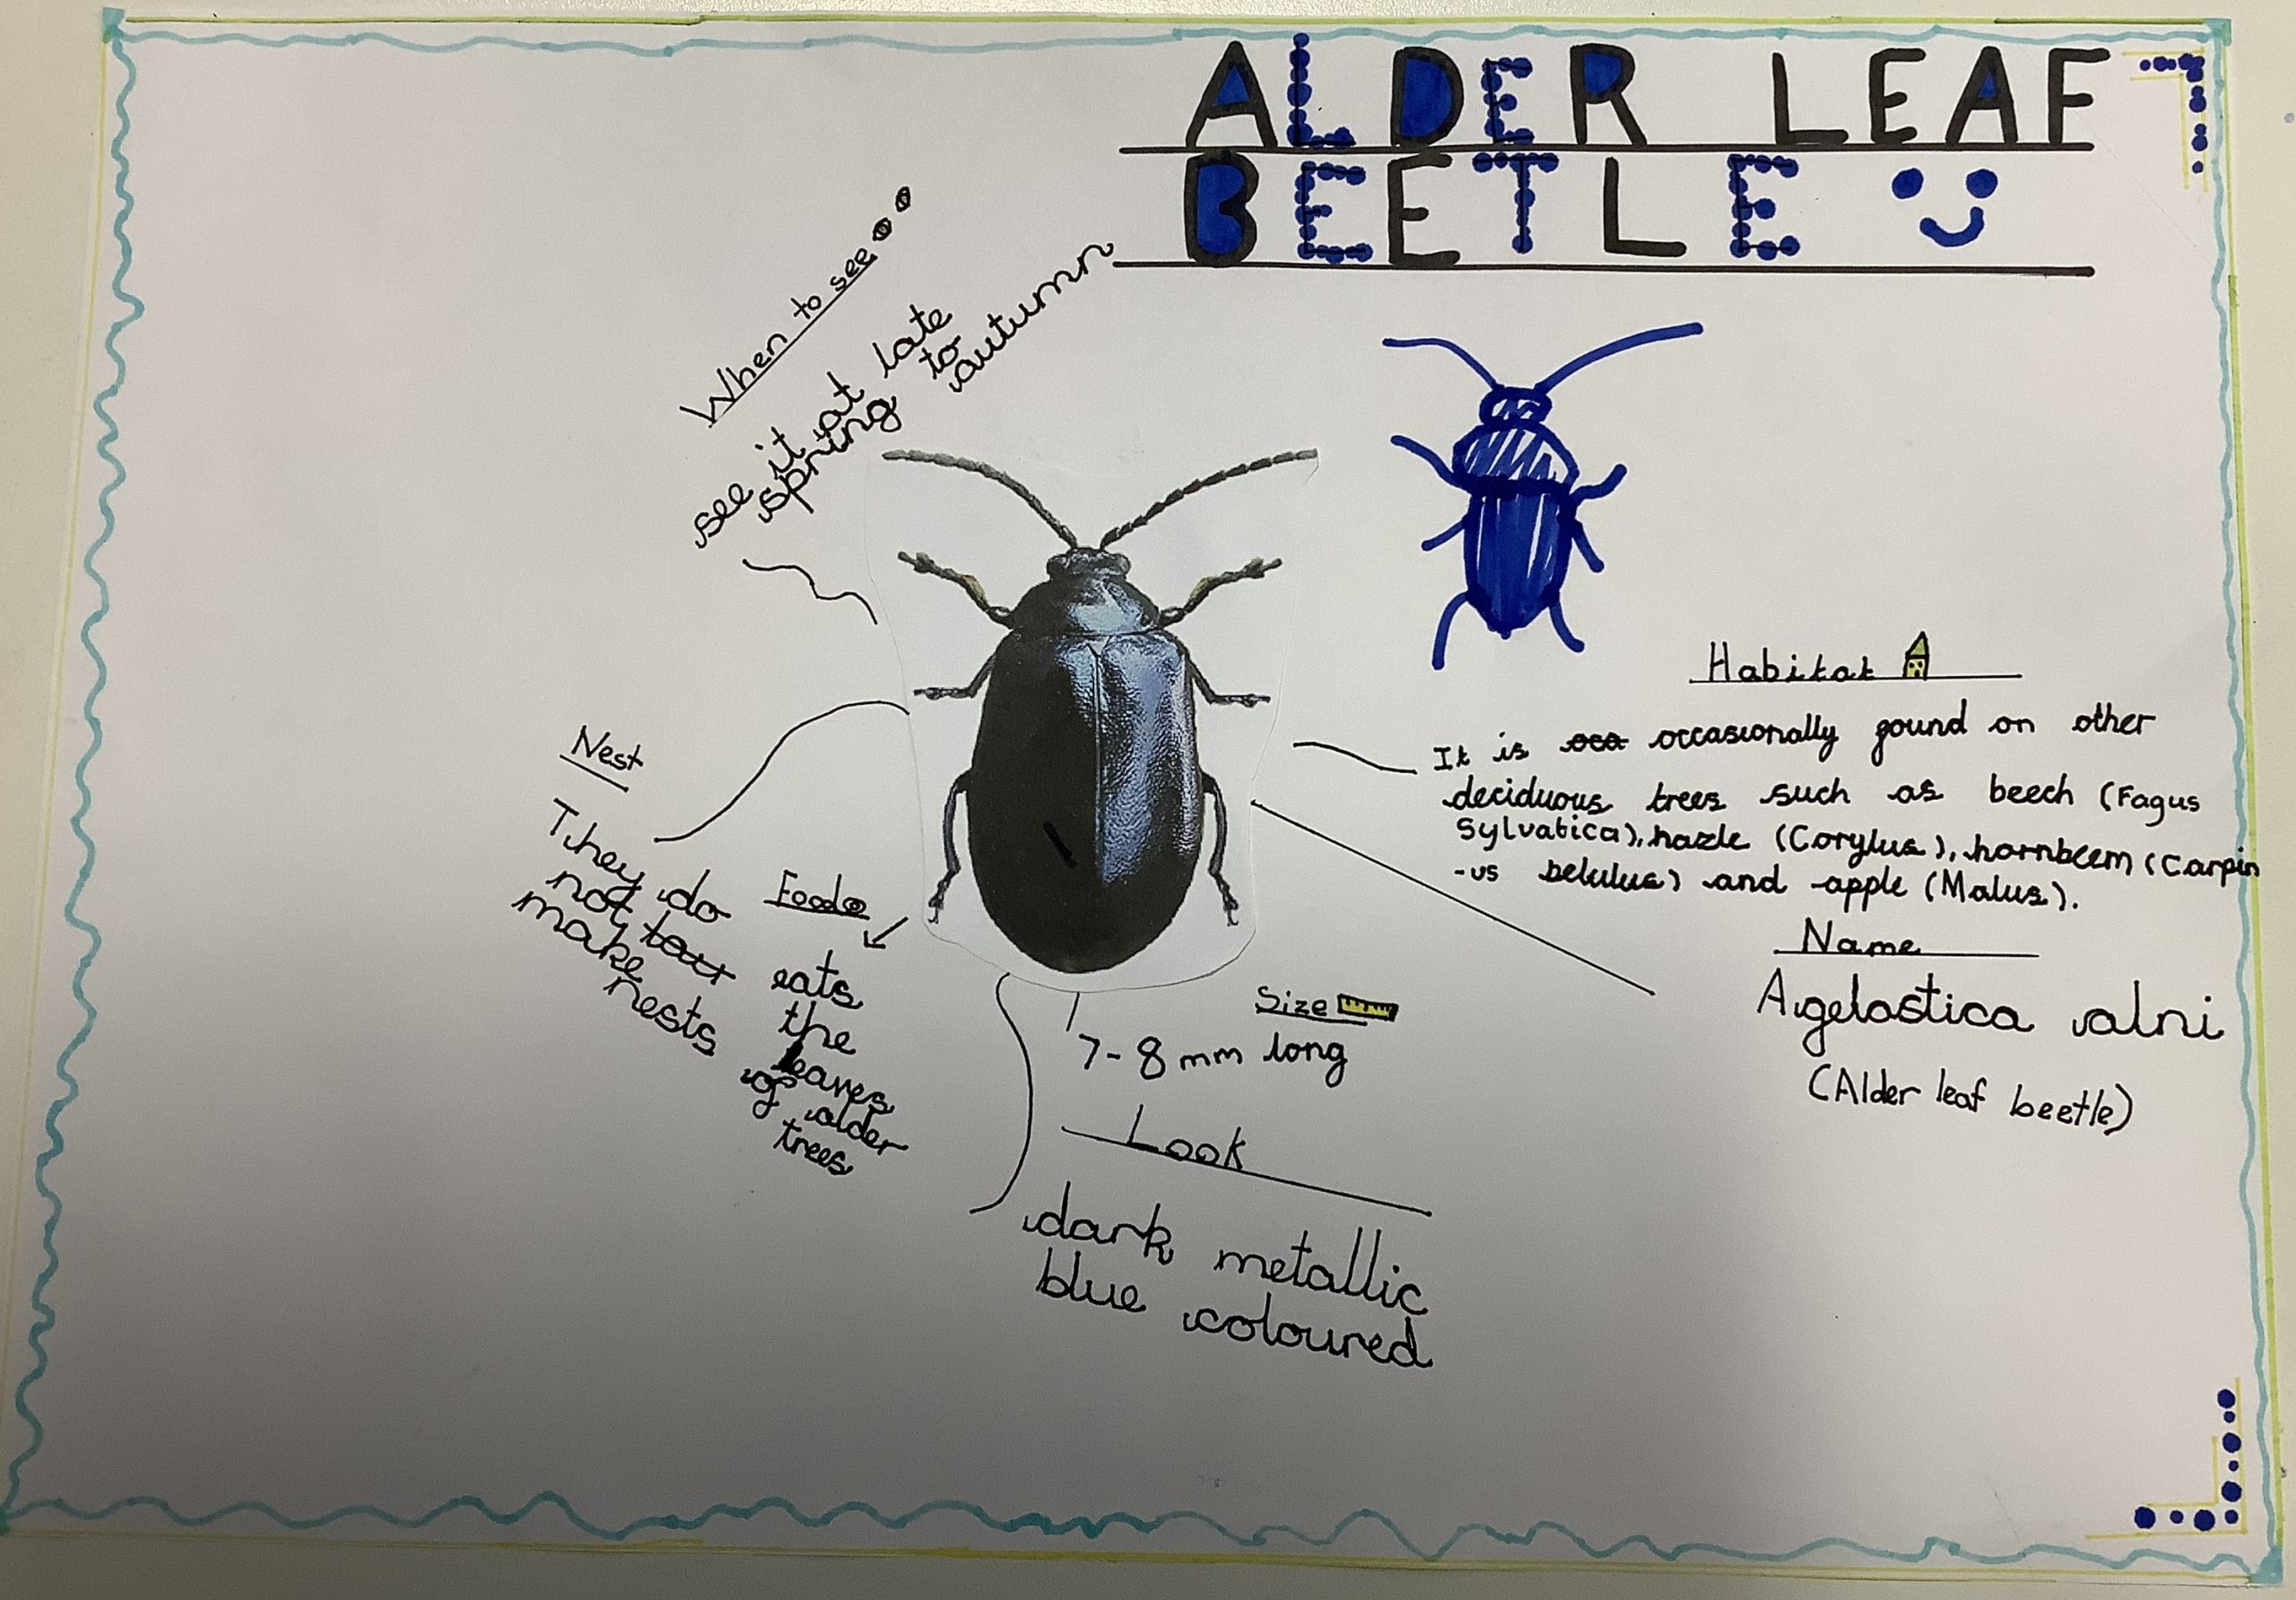 ALDER LEAF
BEETLE
When to see
see it at late
spring to
autumn
Habitat
It is oca occasionally gound on other
deciduous trees such as beech (Fagus
Sylvatica), hazle (Corylus), hornbeem (Carpin
-us belulus) and apple (Malus).
Name
Agelastica alni
(Alder leaf beetle)
Nest
They do
not
make
nests
Food
eats
the
leaves
of alder
trees
Size
7-8 mm long
Look
dark metallic
blue coloured